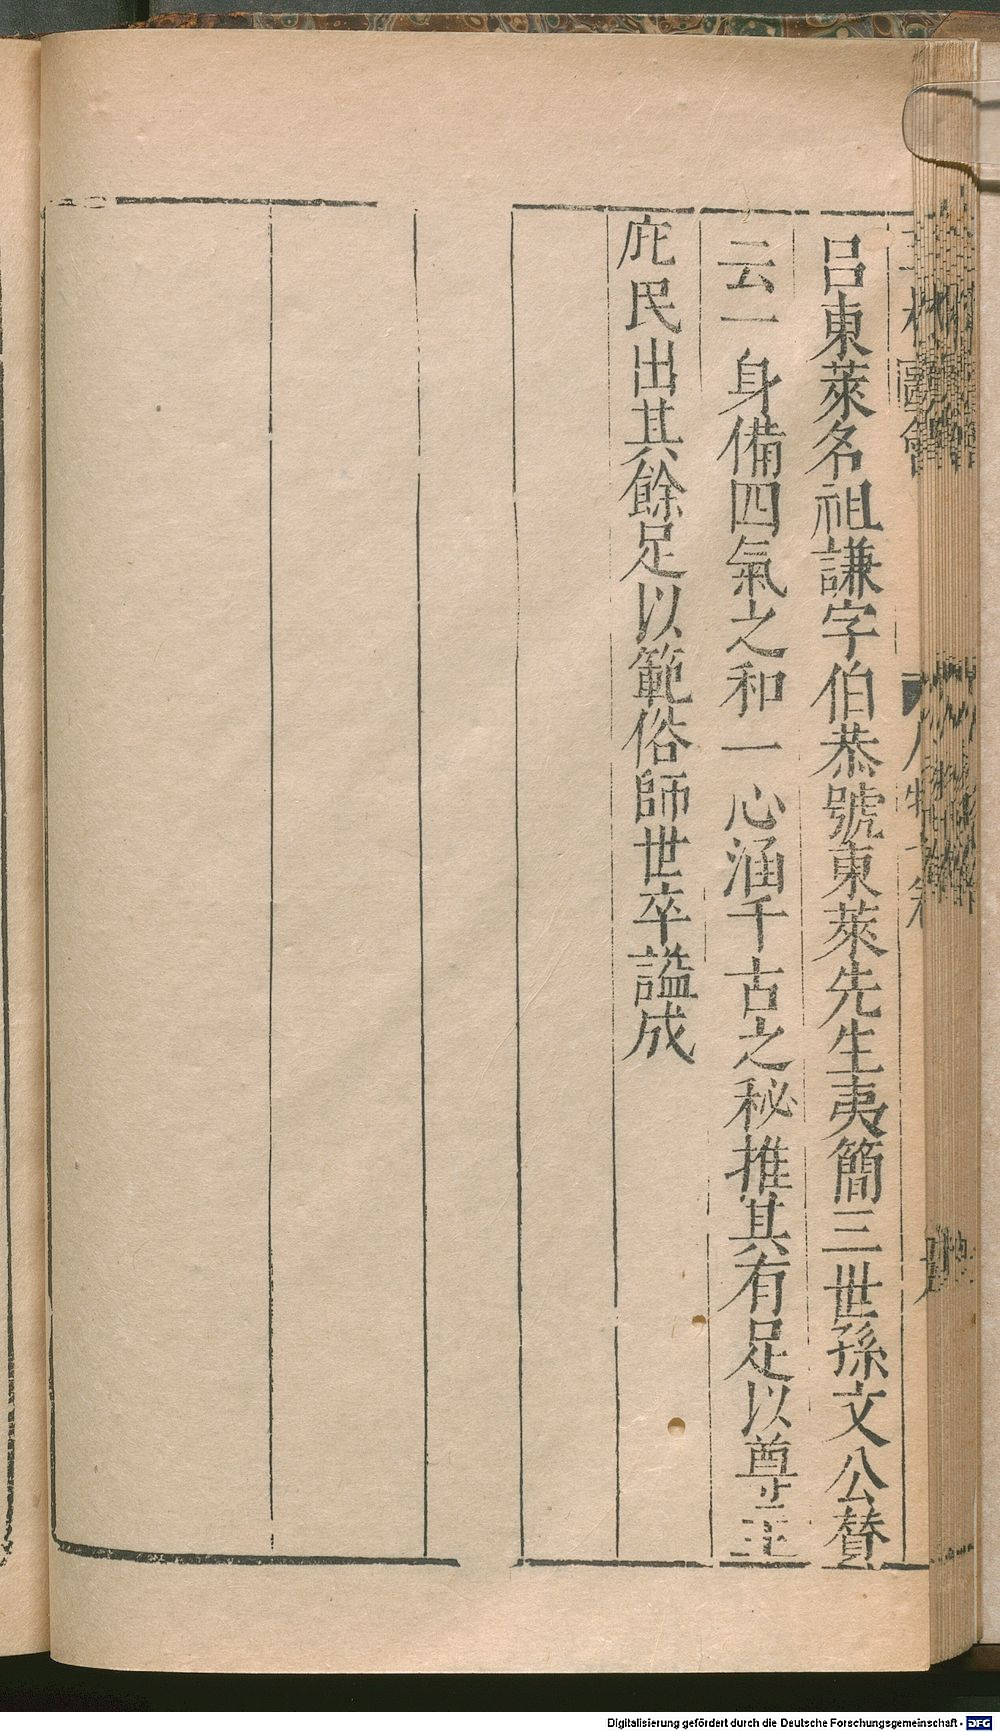 呂東萊名祖謙字伯恭號東萊先生夷簡三世孫文公贊
云一身備四氣之和一心涵千古之秘推其有足以尊主
庇民出其餘足以範俗師世卒謚成
Digitalisierung gefördert durch die Deutsche Forschungsgemeinschaft - DFG